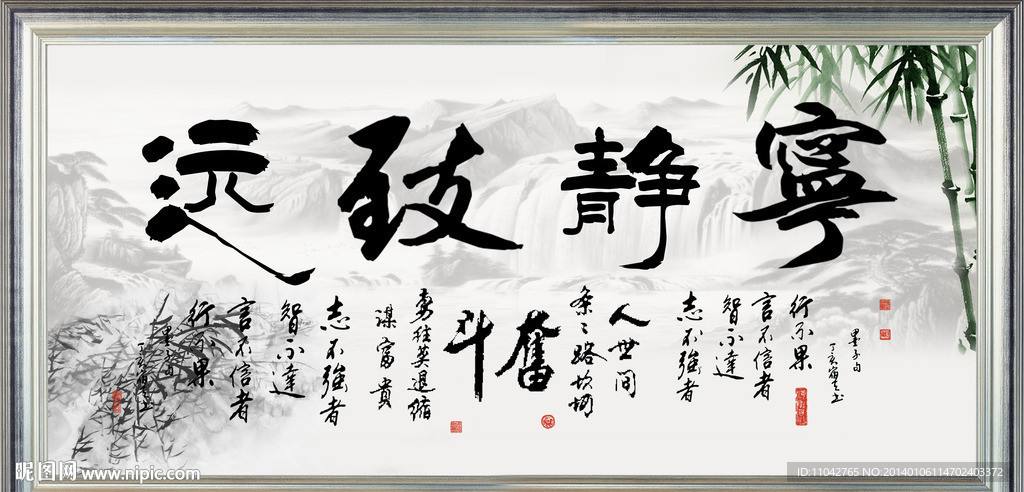 寧靜致远
墨子句
丁亥
行不果
言不信者
智不達
志不強者
人世間
条々路坎坷
奮斗
勇往莫退縮
謀富貴
志不強者
智不達
言不信者
行不果
墨子句
丁亥
昵图网 www.nipic.com
ID:11042765 NO:20140106114702403372